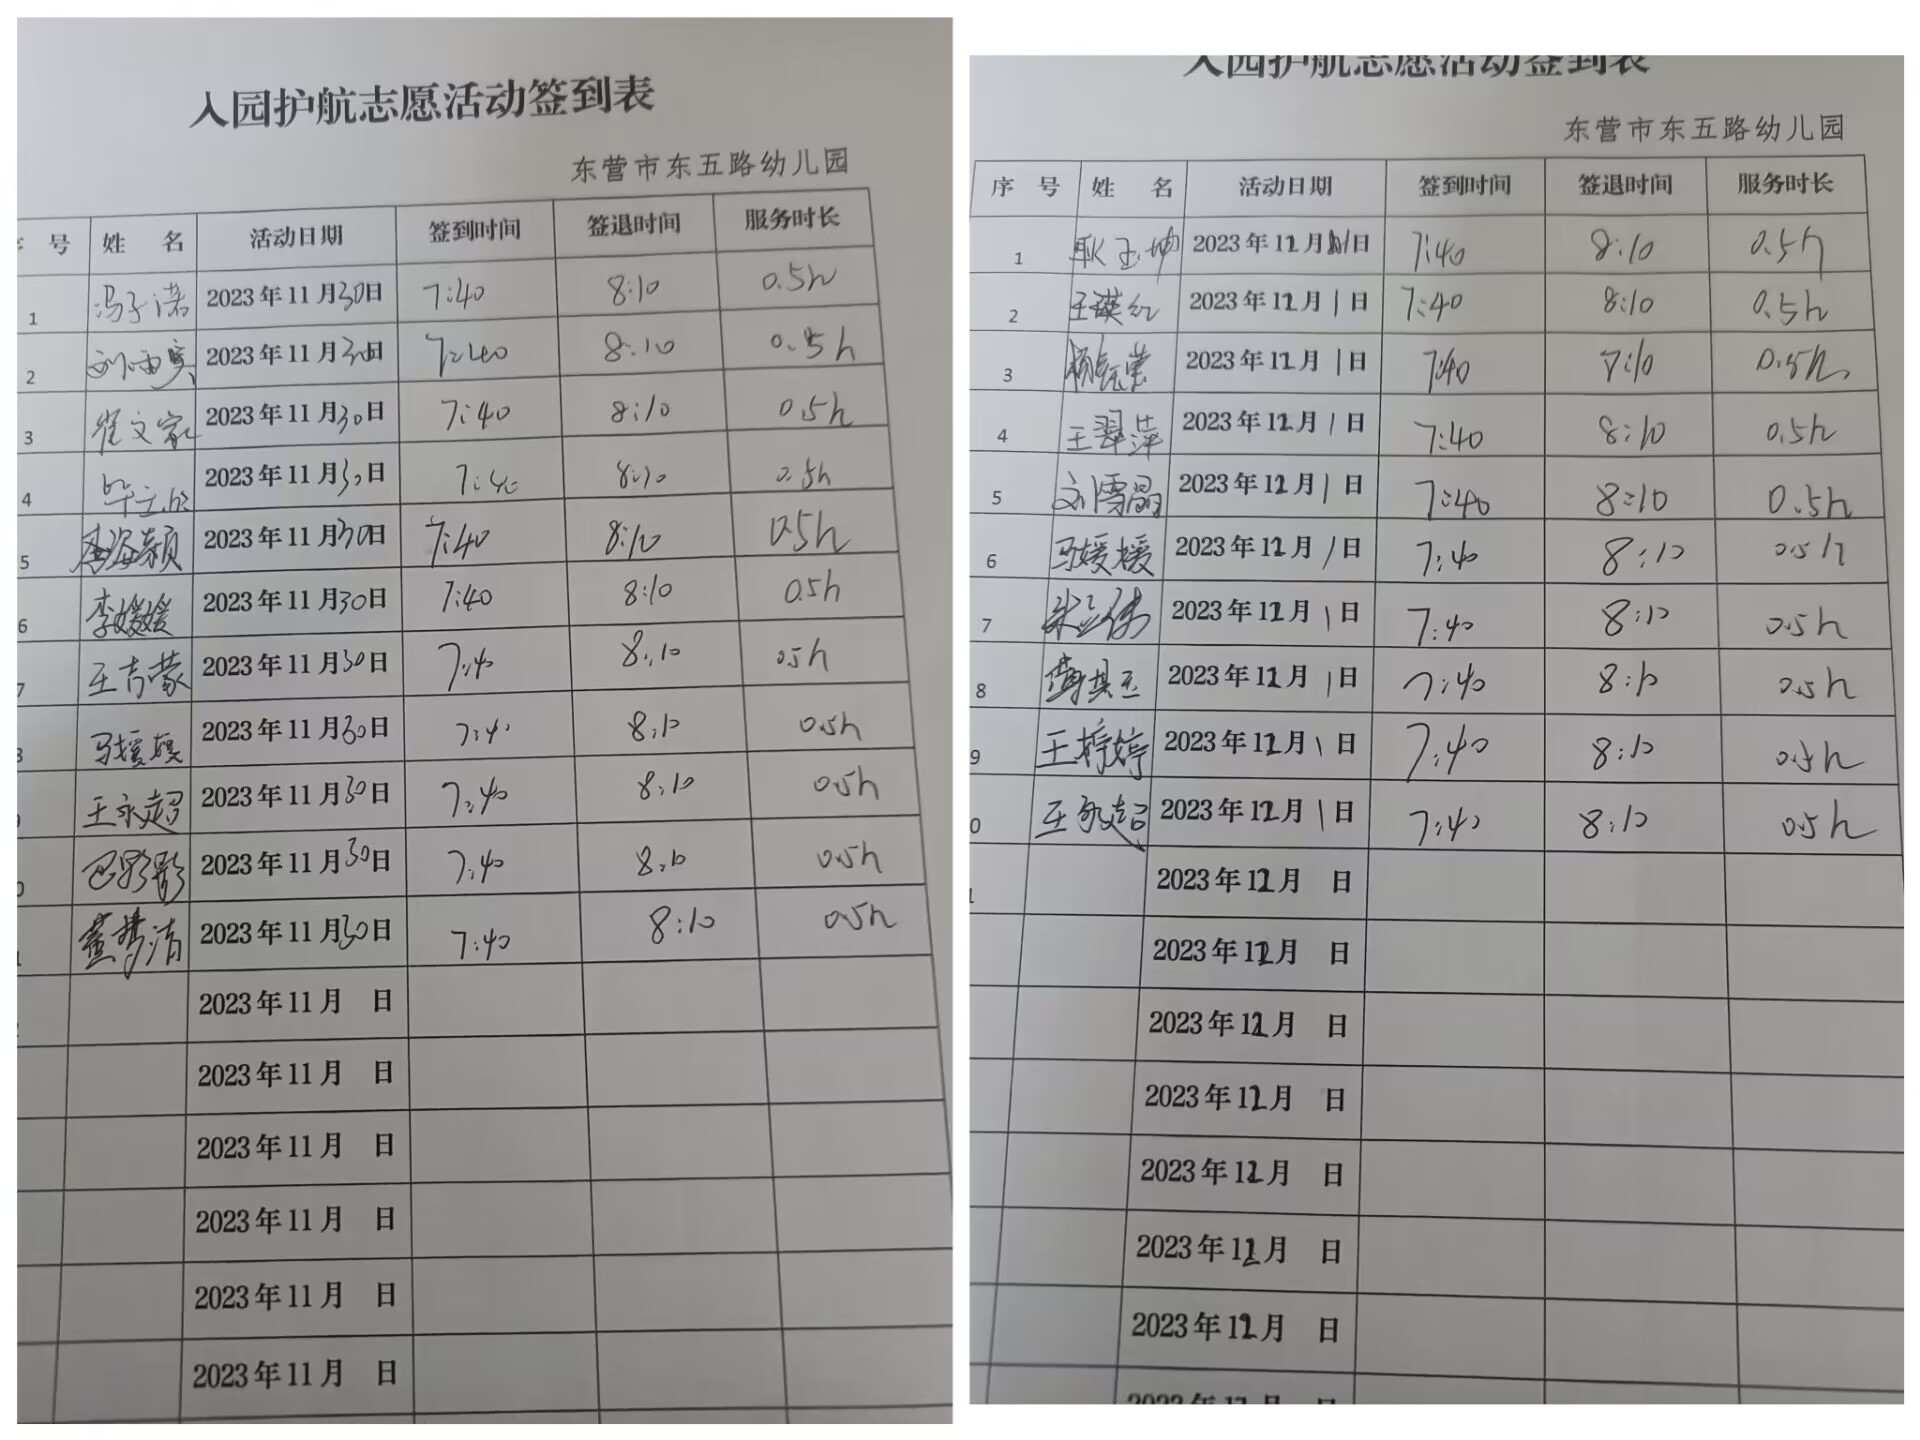 入园护航志愿活动签到表
东营市东五路幼儿园
号 姓 名 活动日期 签到时间 签退时间 服务时长
1 冯子诺 2023年11月30日 7:40 8:10 0.5h
2 刘雨 2023年11月30日 7:40 8:10 0.5h
3 崔文家 2023年11月30日 7:40 8:10 0.5h
4 毕立欣 2023年11月30日 7:40 8:10 0.5h
5 海颖 2023年11月30日 7:40 8:10 0.5h
6 李媛媛 2023年11月30日 7:40 8:10 0.5h
7 王青蒙 2023年11月30日 7:40 8:10 0.5h
马媛媛 2023年11月30日 7:40 8:10 0.5h
王永超 2023年11月30日 7:40 8:10 0.5h
0 巴影影 2023年11月30日 7:40 8:10 0.5h
董梦清 2023年11月30日 7:40 8:10 0.5h
2023年11月 日
2023年11月 日
2023年11月 日
2023年11月 日
2023年11月 日
2023年11月 日
入园护航志愿活动签到表
东营市东五路幼儿园
序 号 姓 名 活动日期 签到时间 签退时间 服务时长
1 耿玉坤 2023年12月 日 7:40 8:10 0.5h
2 王瑛红 2023年12月1日 7:40 8:10 0.5h
3 杨 2023年12月1日 7:40 8:10 0.5h
4 王翠萍 2023年12月1日 7:40 8:10 0.5h
5 刘雪晶 2023年12月1日 7:40 8:10 0.5h
6 马媛媛 2023年12月1日 7:40 8:10 0.5h
7 2023年12月1日 7:40 8:10 0.5h
8 其玉 2023年12月1日 7:40 8:10 0.5h
9 王婷婷 2023年12月1日 7:40 8:10 0.5h
0 王永超 2023年12月1日 7:40 8:10 0.5h
2023年12月 日
2023年12月 日
2023年12月 日
2023年12月 日
2023年12月 日
2023年12月 日
2023年12月 日